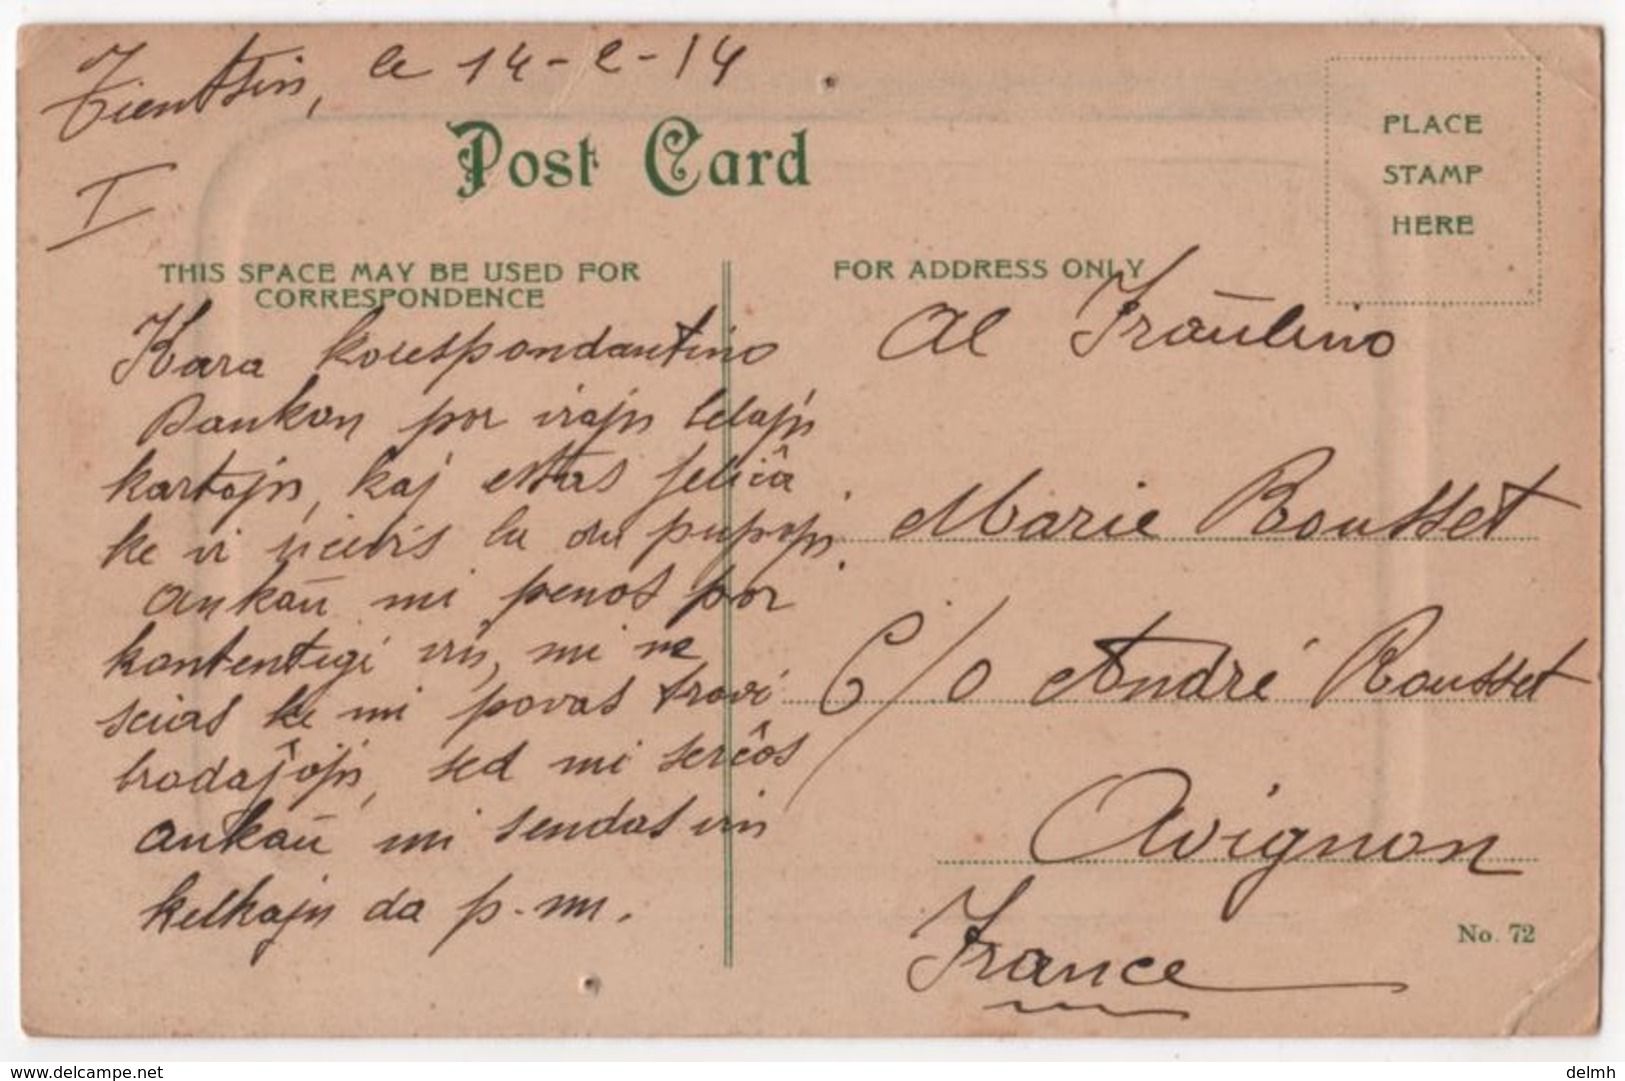 Tientsin, le 14-2-14
I
Post Card
PLACE
STAMP
HERE
THIS SPACE MAY BE USED FOR
CORRESPONDENCE
Kara korespondantino
Dankon por viajn belajn
kartojn, kaj estas feliĉa
ke vi ricevis la du pupojn.
Ankaŭ mi penos por
kontentigi vin, mi ne
scias ke mi povas trovi
brodaĵojn, sed mi serĉos
ankaŭ mi sendas vin
kelkajn da p.m.
FOR ADDRESS ONLY
Al Fraŭlino
Marie Rousset
C/o André Rousset
Avignon
France
No. 72
www.delcampe.net
delmh